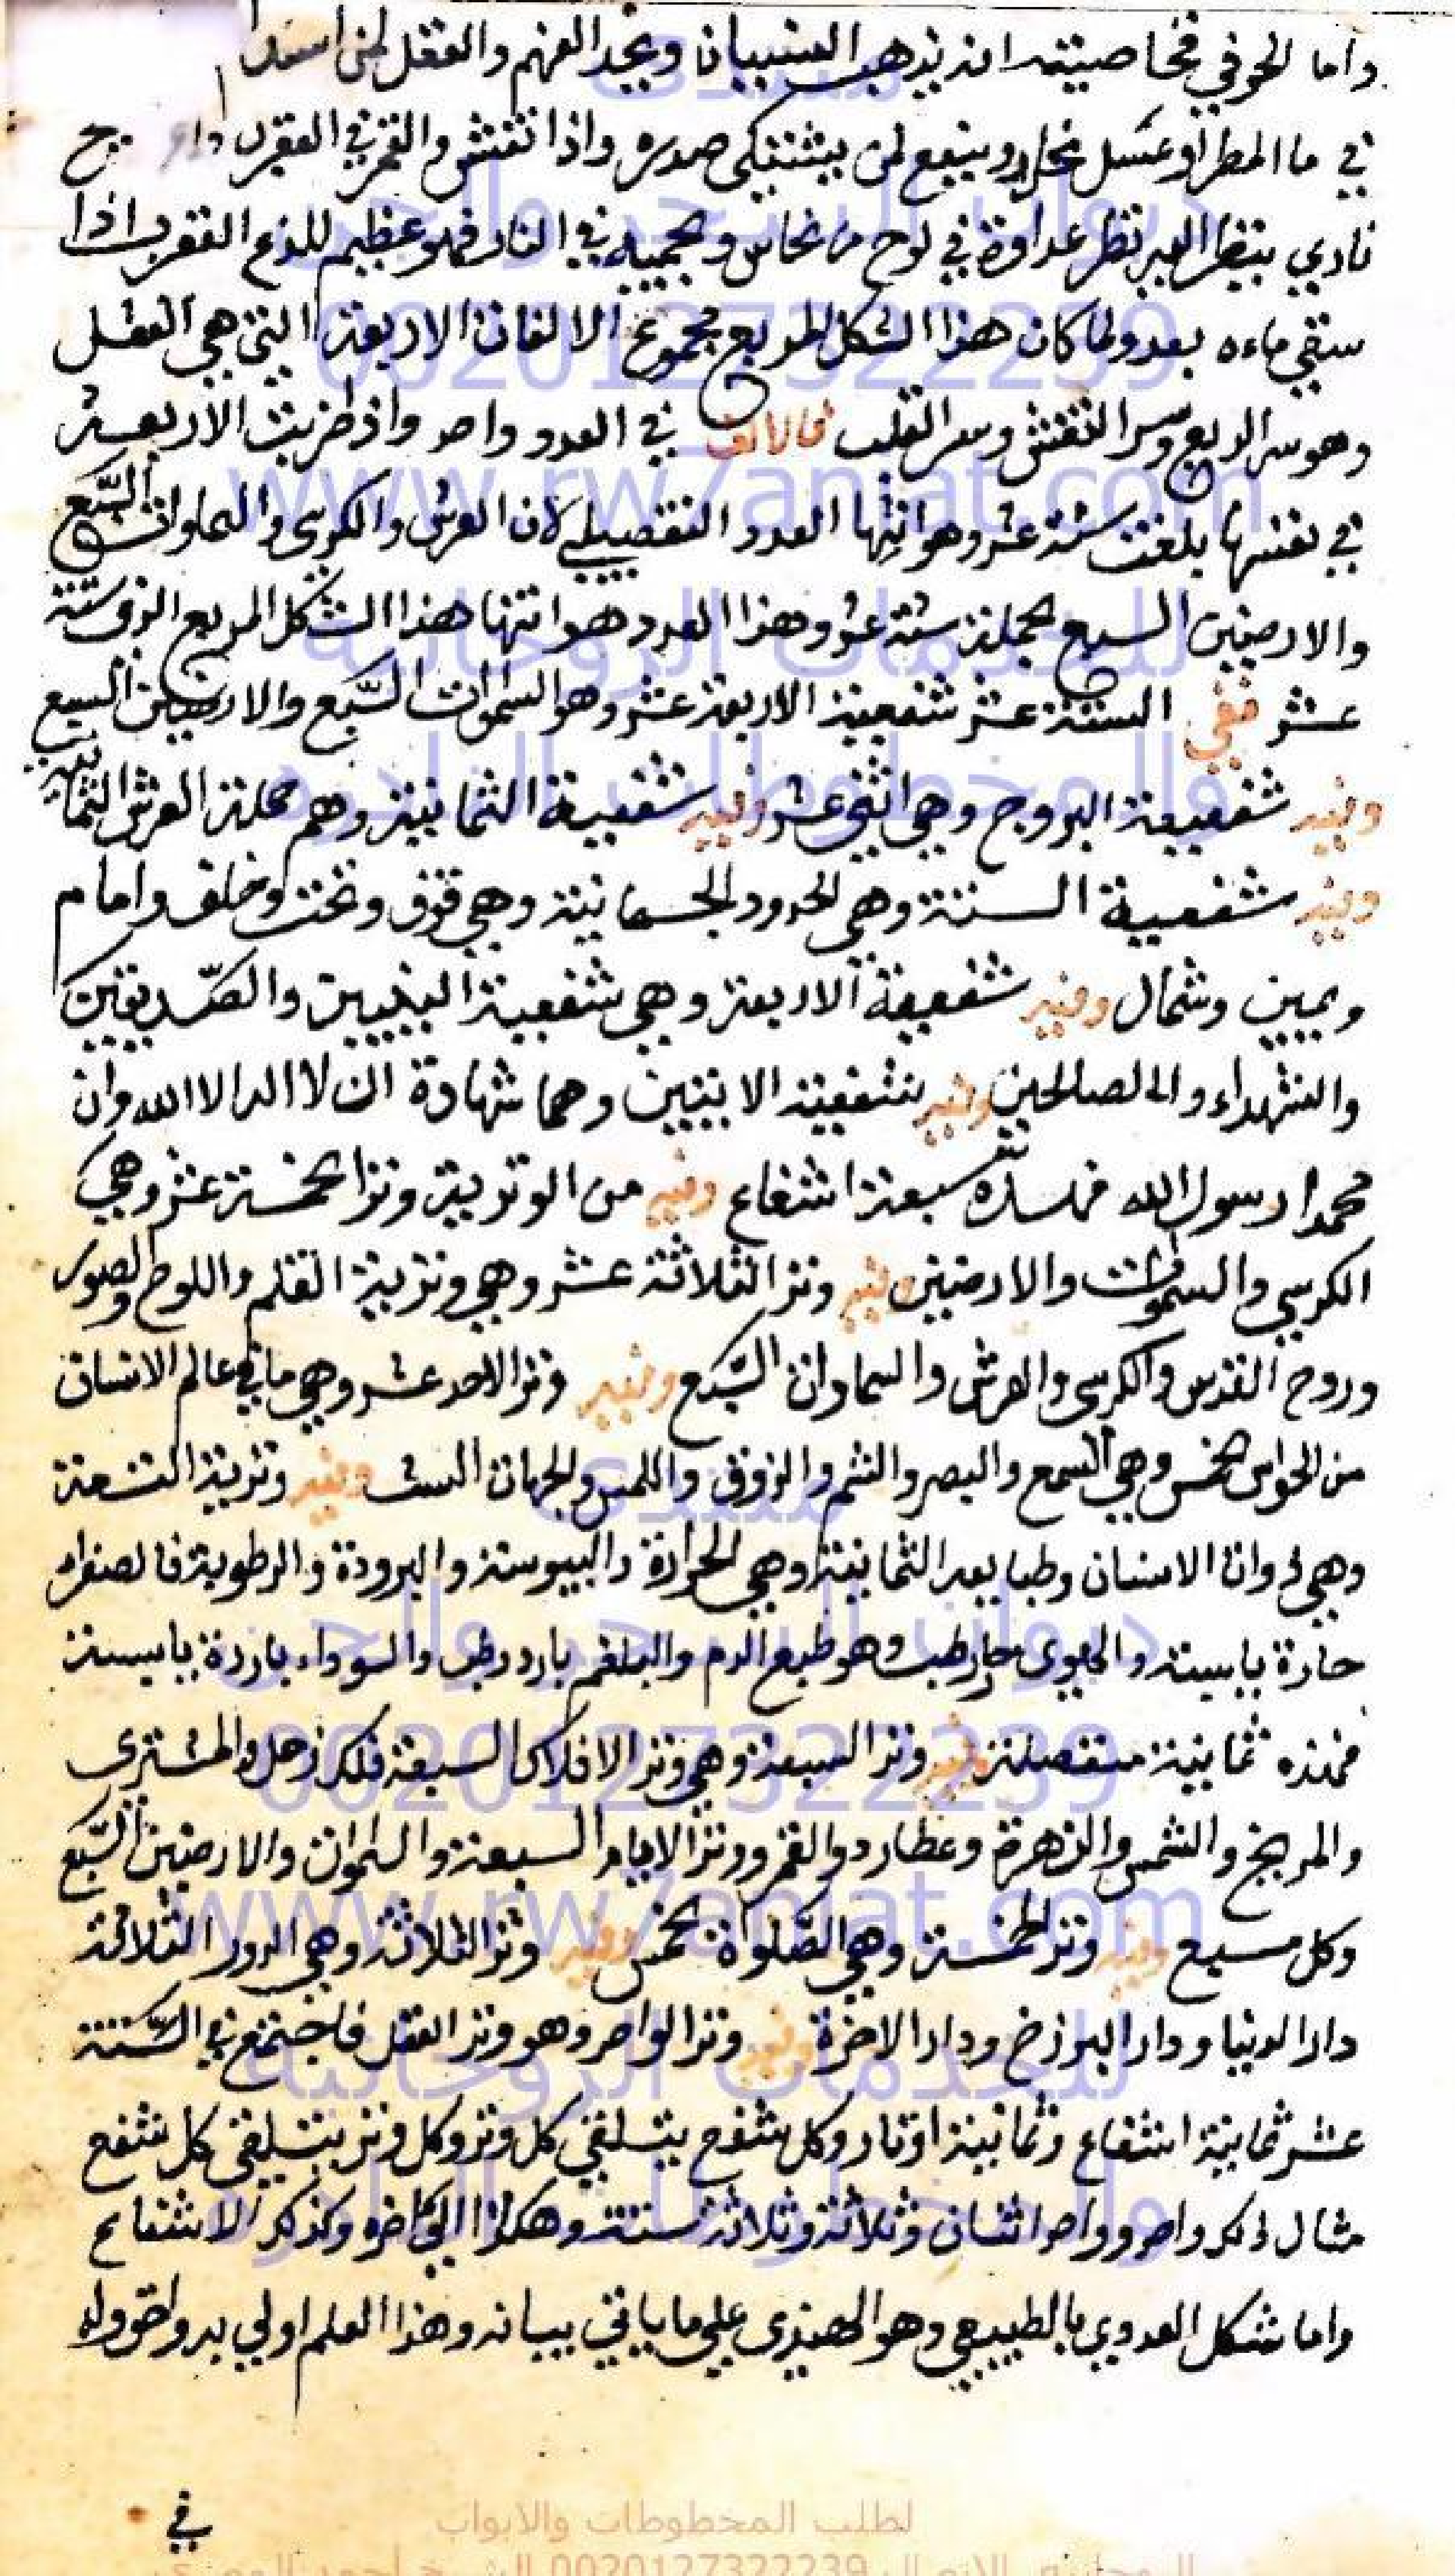 واما الحرفي فخاصيته انه يذهب النسيان ويجد الفهم والعقل لمن
في ما المطر او عسل نحل وينفع لمن يشتكي صدره واذا نقش والقمر في العقرب
نادي ينظر اليه نظر عداوة في لوح من نحاس وتحميه في النار فهو عظيم للذع العقرب اذا
سقي ماءه بعد ولما كان هذا الشكل المربع مجموع الالفات الاربعة التي هي العقل
وهو سر الربع وسر النقش وسر القلب فالالف في العدد واحد واذا ضربت الاربعة
في نفسها بلغت ستة عشر وهو انتها العدد التفصيلي لان العرش والكرسي والسماوات السّبع
والارضين السبع جملة ستة عشر وهذا العدد هو انتها هذا الشكل المربع الزوستة
عشر ففي الستة عشر شفعية الاربعة عشر وهو السموات السّبع والارضين السبع
وفيه شفعية البروج وهي اثني عشر وفيه شفعية الثمانية وهم حملة العرش الثمانية
وفيه شفعية الستة وهي الحدود الجسمانية وهي فوق وتحت وخلف وامام
ويمين وشمال وفيه شفعية الاربعة وهي شفعية النبيين والصّديقين
والشهداء والصالحين وفيه شفعية الاثنين وهما شهادة ان لا اله الا الله وان
محمدا رسول الله فهذه سبعة اشفاع وفيه من الوترية وتر الخمسة عشر وهي
الكرسي والسموات والارضين وفيه وتر الثلاثة عشر وهي وترية القلم واللوح والصور
وروح القدس والكرسي والعرش والسماوات السّبع وفيه وتر الاحد عشر وهي ما في عالم الانسان
من الحواس الخمس وهي السمع والبصر والشم والذوق واللمس والجهات الست وفيه وترية التسعة
وهي ذوات الانسان وطبايعه الثمانية وهي الحرارة واليبوسة والبرودة والرطوبة فالصفراء
حارة يابسة والهوى حار رطب وهو طبع الدم والبلغم بارد رطب والسوداء باردة يابسة
فهذه ثمانية منفصلة وفيه وتر السبعة وهي وتر الافلاك السبعة فلك زحل والمشتري
والمريخ والشمس والزهرة وعطارد والقمر ووتر الايام السبعة والسموات والارضين السّبع
وكل مسبع وفيه وتر الخمسة وهي الصّلواة الخمس وفيه وتر الثلاثة وهي الدور الثلاثة
دار الدنيا ودار البرزخ ودار الاخرة وفيه وتر الواحد وهو وتر العقل فاجتمع في السّتة
عشر ثمانية اشفاع وثمانية اوتار وكل شفع يتلقي كل وتر وكل وتر يتلقي كل شفع
مثال ذلك واحد وواحد اثنان وثلاثة وثلاثة ستة وهكذا الي اخره وكذلك الاشفاع
واما شكل العددي بالطبيعي وهو الهندي علي ما ياتي بيانه وهذا العلم اولي به
في
منتدى
ديوان السحر والجن
0020127322239
www.rw7aniat.com
للخدمات الروحانية
والمخطوطات النادرة
منتدى
ديوان السحر والجن
0020127322239
www.rw7aniat.com
للخدمات الروحانية
والمخطوطات النادرة
لطلب المخطوطات والابواب
الروحانية الاتصال 0020127322239 الشيخ احمد المصري